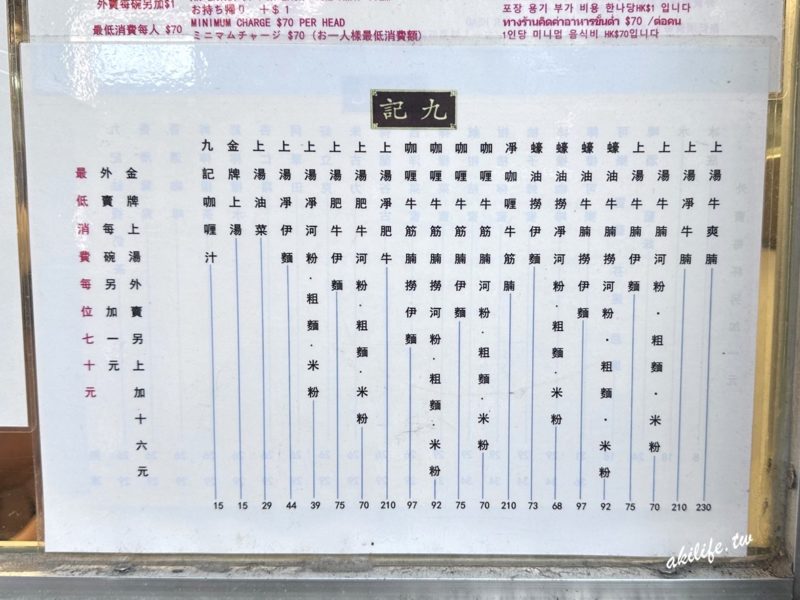 外賣每碗另加$1
最低消費每人 $70
お持ち帰り ＋＄１
MINIMUM CHARGE $70 PER HEAD
ミニマムチャージ $70 (お一人様最低消費額)
포장 용기 부가 비용 한나당HK$1 입니다
ทางร้านคิดค่าอาหารขั้นต่ำ $70 /ต่อคน
1인당 미니멈 음식비 HK$70입니다
九記
上湯牛爽腩 230
上湯凈牛腩 210
上湯牛腩河粉．粗麵．米粉 70
上湯牛腩伊麵 75
蠔油牛腩撈河粉．粗麵．米粉 92
蠔油牛腩撈伊麵 97
蠔油撈凈河粉．粗麵．米粉 68
蠔油撈伊麵 73
凈咖喱牛筋腩 210
咖喱牛筋腩河粉．粗麵．米粉 70
咖喱牛筋腩伊麵 75
咖喱牛筋腩撈河粉．粗麵．米粉 92
咖喱牛筋腩撈伊麵 97
上湯凈肥牛 210
上湯肥牛河粉．粗麵．米粉 70
上湯肥牛伊麵 75
上湯凈河粉．粗麵．米粉 39
上湯凈伊麵 44
上湯油菜 29
金牌上湯 15
九記咖喱汁 15
金牌上湯外賣另上加十六元
外賣每碗另加一元
最低消費每位七十元
akilife.tw